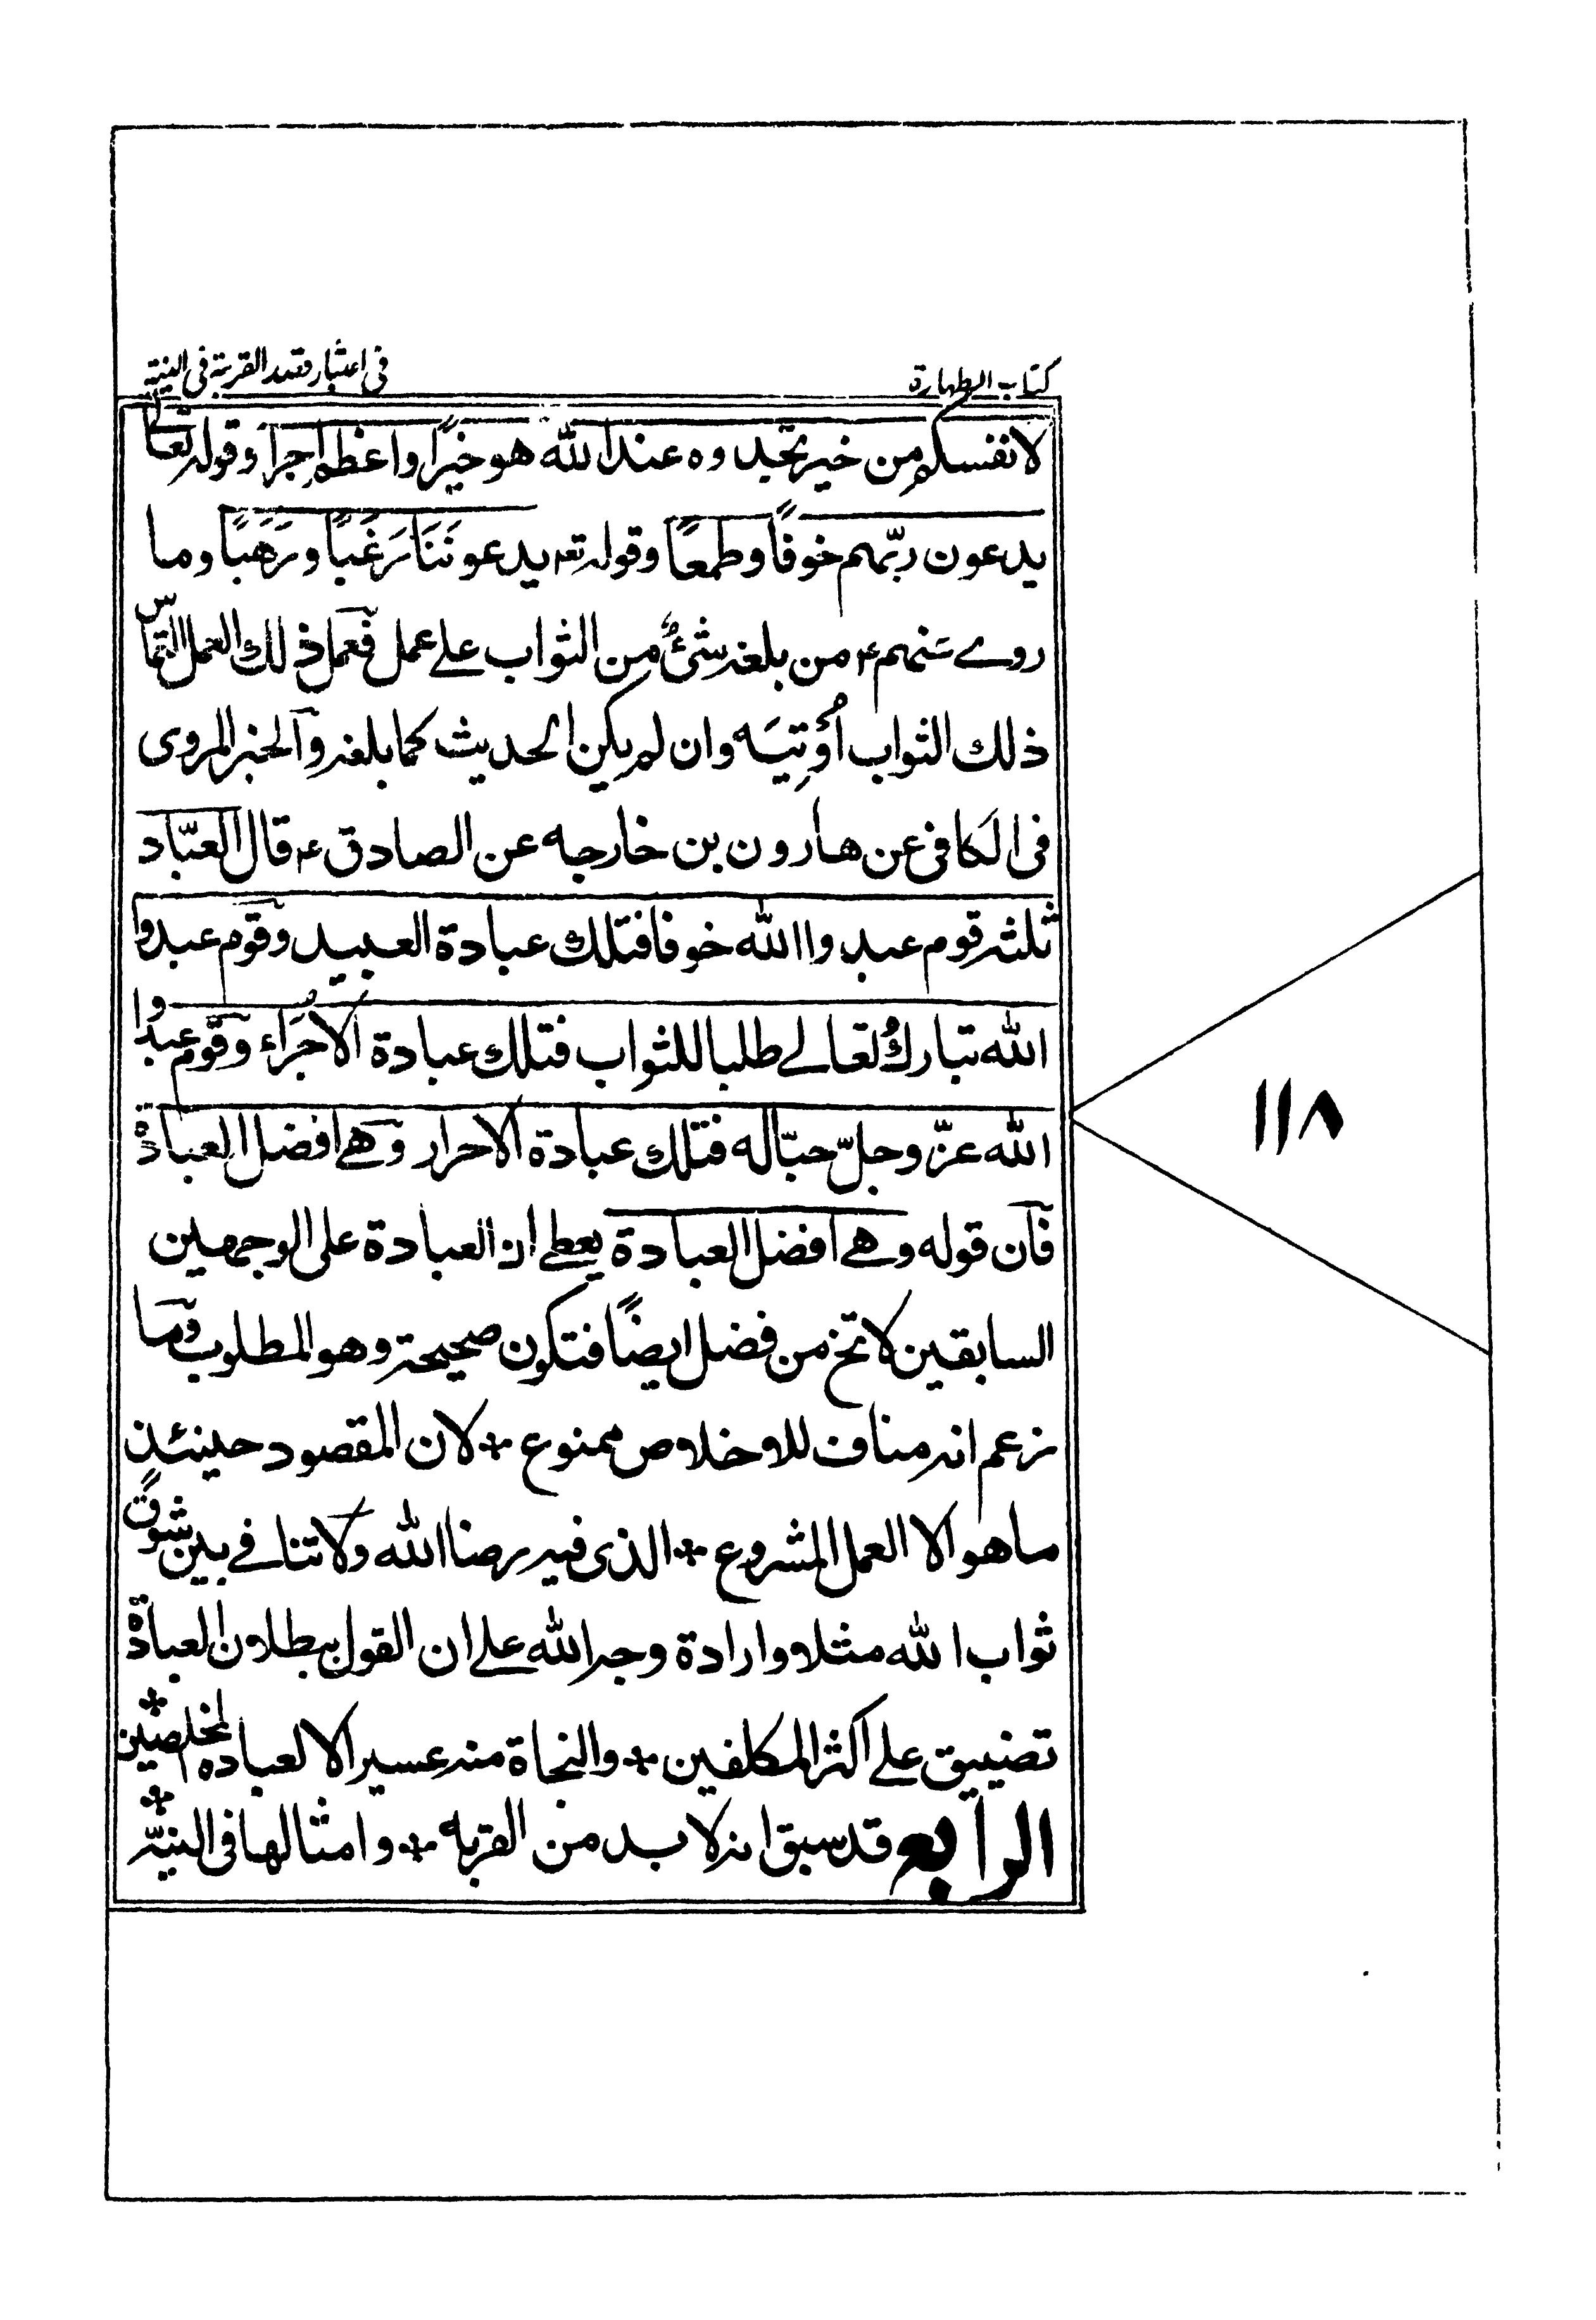 كتاب الطهارة
فى اعتبار قصد القربة فى النية
لانفسكم من خير تجدوه عند الله هو خيرًا واعظم اجرا وقوله تعالى
يدعون ربّهم خوفًا وطمعًا وقوله تعه يدعونَنَا رَغَبًا ورَهَبًا وما
روے عنهم ع من بلغه شئٌ من الثواب علے عمل فعمل ذلك العمل التماس
ذلك الثواب أُوْتِيَه وان لم يكن الحديث كما بلغه والخبر المروى
فى الكافى عن هارون بن خارجه عن الصادق ع قال العبّاد
ثلثه قوم عبدوا الله خوفا فتلك عبادة العبيد وقوم عبدوا
الله تبارك وتعالے طلبا للثواب فتلك عبادة الأُجَراء وقوم عبدوا
الله عزّ وجلّ حبّا له فتلك عبادة الاحرار وهے افضل العبادة
فان قوله وهے افضل العبادة يعطے ان العبادة على الوجهين
السابقين لا تخ من فضل ايضًا فتكون صحيحة وهو المطلوب وما
زعم انه مناف للاخلاص ممنوع * لان المقصود حينئذٍ
ما هو الا العمل المشروع * الذى فيه رضا الله ولا تنافے بين شوق
ثواب الله مثلا وارادة وجه الله علے ان القول ببطلان العبادة
تضييق علے اكثر المكلفين * والنجاة منه عسير الا لعباده المخلصين *
الرابع قد سبق انه لا بد من القربه * وامثالها فى النيّة *
١١٨